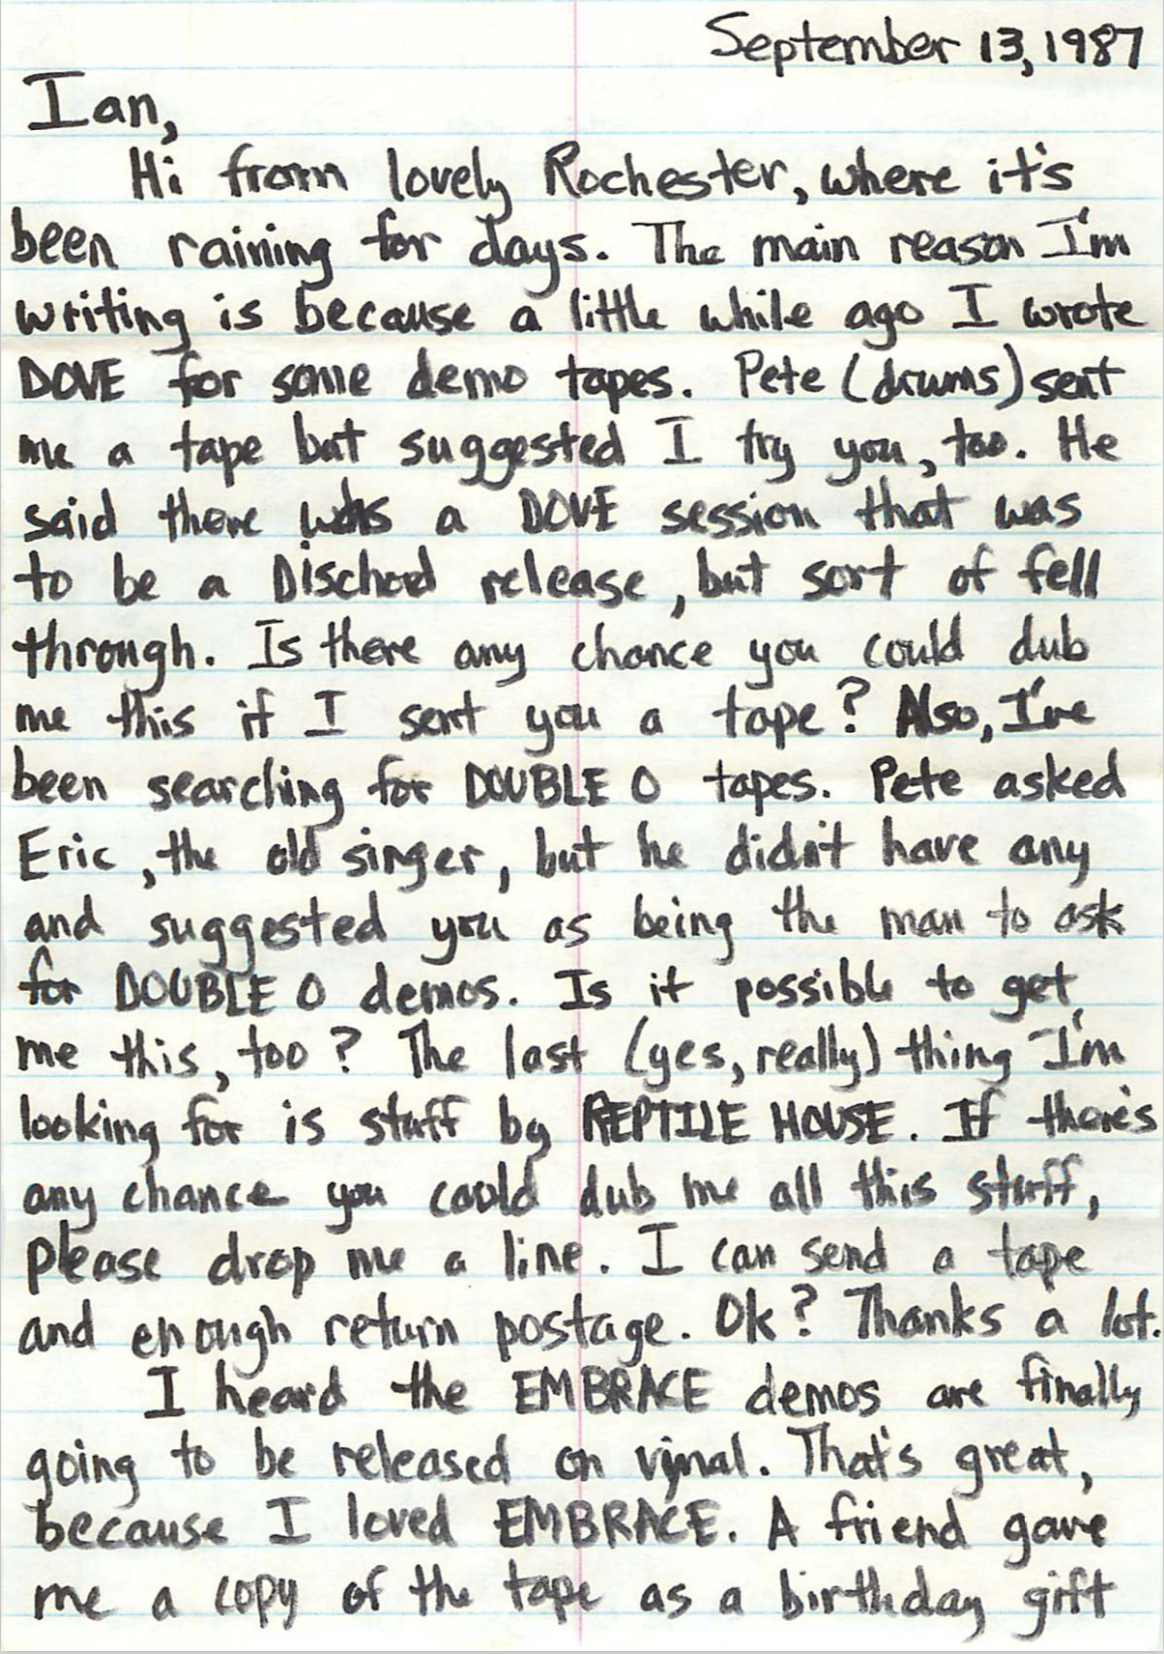 September 13, 1987
Ian,
Hi from lovely Rochester, where it's
been raining for days. The main reason I'm
writing is because a little while ago I wrote
DOVE for some demo tapes. Pete (drums) sent
me a tape but suggested I try you, too. He
said there was a DOVE session that was
to be a Dischord release, but sort of fell
through. Is there any chance you could dub
me this if I sent you a tape? Also, I've
been searching for DOUBLE O tapes. Pete asked
Eric, the old singer, but he didn't have any
and suggested you as being the man to ask
for DOUBLE O demos. Is it possible to get
me this, too? The last (yes, really) thing I'm
looking for is stuff by REPTILE HOUSE. If there's
any chance you could dub me all this stuff,
please drop me a line. I can send a tape
and enough return postage. Ok? Thanks a lot.
I heard the EMBRACE demos are finally
going to be released on vynal. That's great,
because I loved EMBRACE. A friend gave
me a copy of the tape as a birthday gift